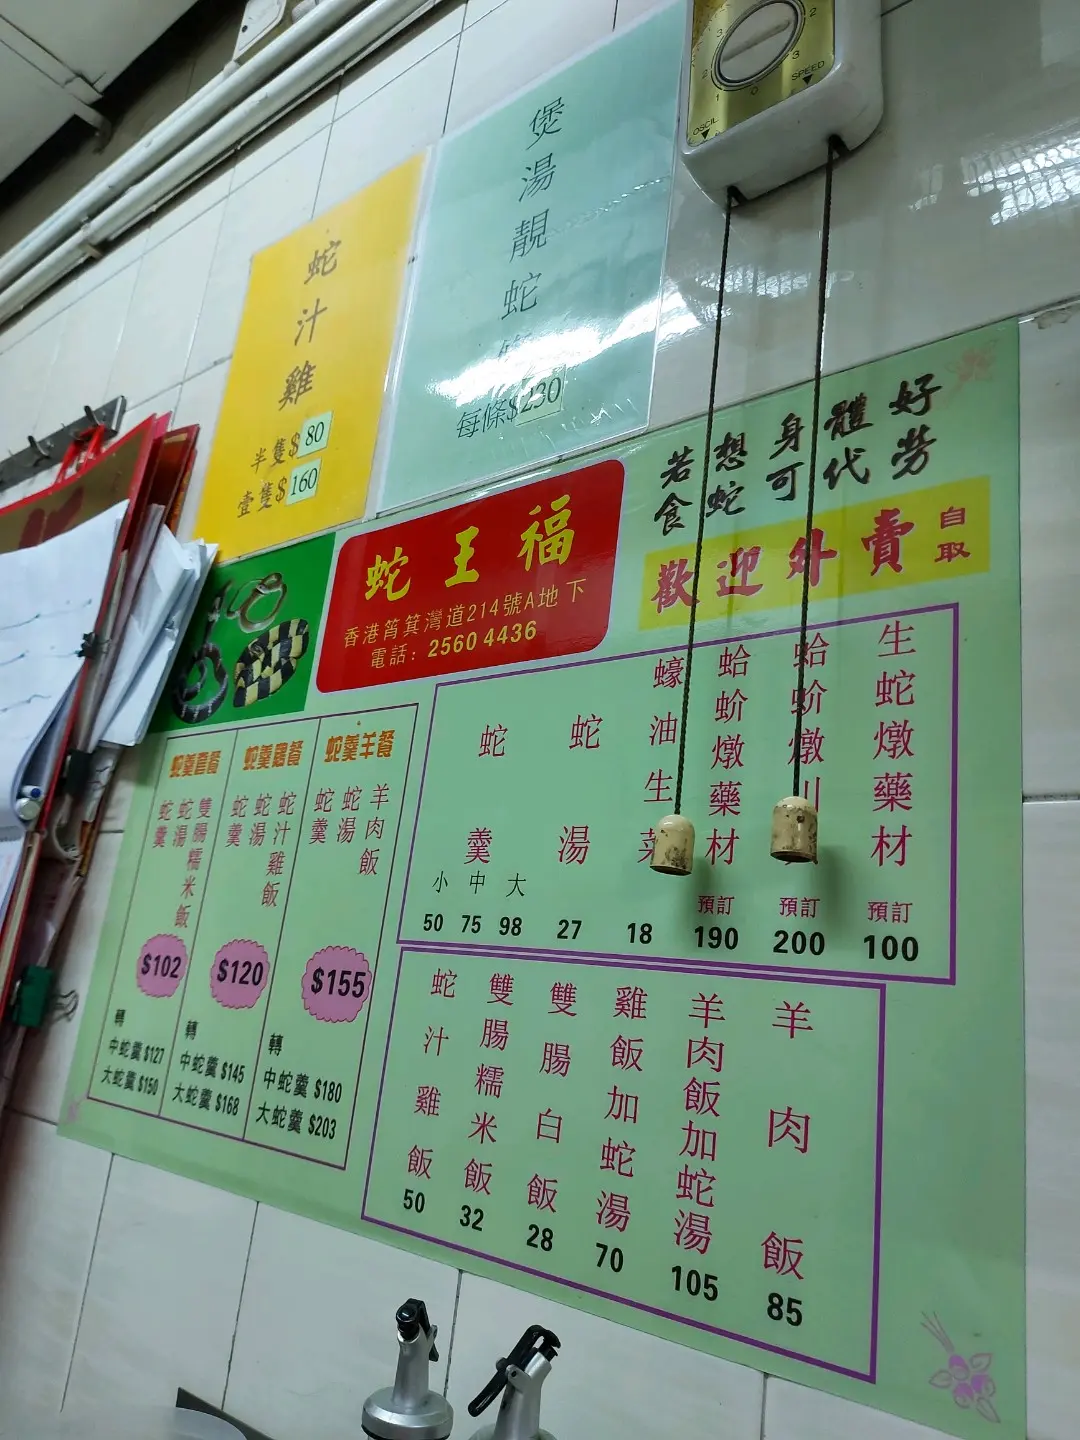 3
2
2
3
1
0
SPEED
OSCIL
煲湯靚蛇
每條$230
蛇汁雞
半隻$80
壹隻$160
若想身體好
食蛇可代勞
歡迎外賣
自取
蛇王福
香港筲箕灣道214號A地下
電話: 2560 4436
蛇羹套餐
蛇羹
蛇湯
雙腸糯米飯
$102
轉
中蛇羹 $127
大蛇羹 $150
蛇羹雞餐
蛇羹
蛇湯
蛇汁雞飯
$120
轉
中蛇羹 $145
大蛇羹 $168
蛇羹羊餐
蛇羹
蛇湯
羊肉飯
$155
轉
中蛇羹 $180
大蛇羹 $203
蛇羹
小 中 大
50 75 98
蛇湯
27
蠔油生菜
18
蛤蚧燉藥材
預訂
190
蛤蚧燉川
預訂
200
生蛇燉藥材
預訂
100
蛇汁雞飯
50
雙腸糯米飯
32
雙腸白飯
28
雞飯加蛇湯
70
羊肉飯加蛇湯
105
羊肉飯
85